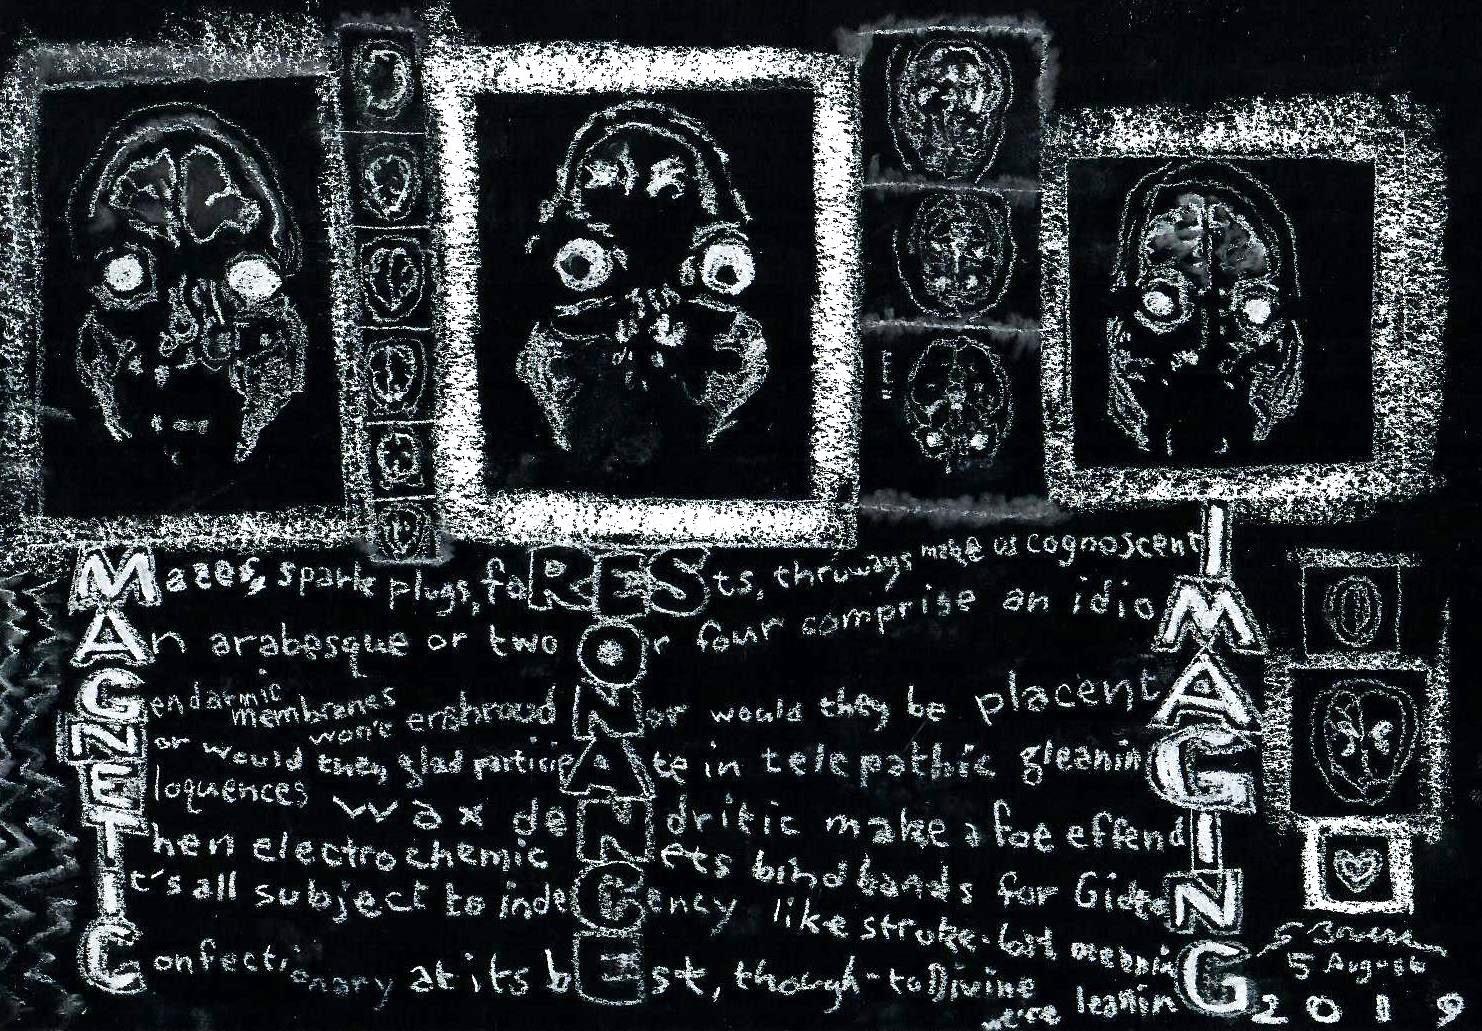 Mazes, spark plugs, foRESts, thruways make us cognoscentI
An arabesque or two Or four comprise an idioM
Gendarmic membranes won't embroud Nor would they be placentA
Nor would they glad participAte in telepathic gleaninG
Eloquences wax deNdritic make a foe effendI
Then electrochemic bind bands for GideoN
It's all subject to indeCency like stroke-lost
ConfectionAry at its bEst, though-to Divine
we're leaninG
5 August
2019